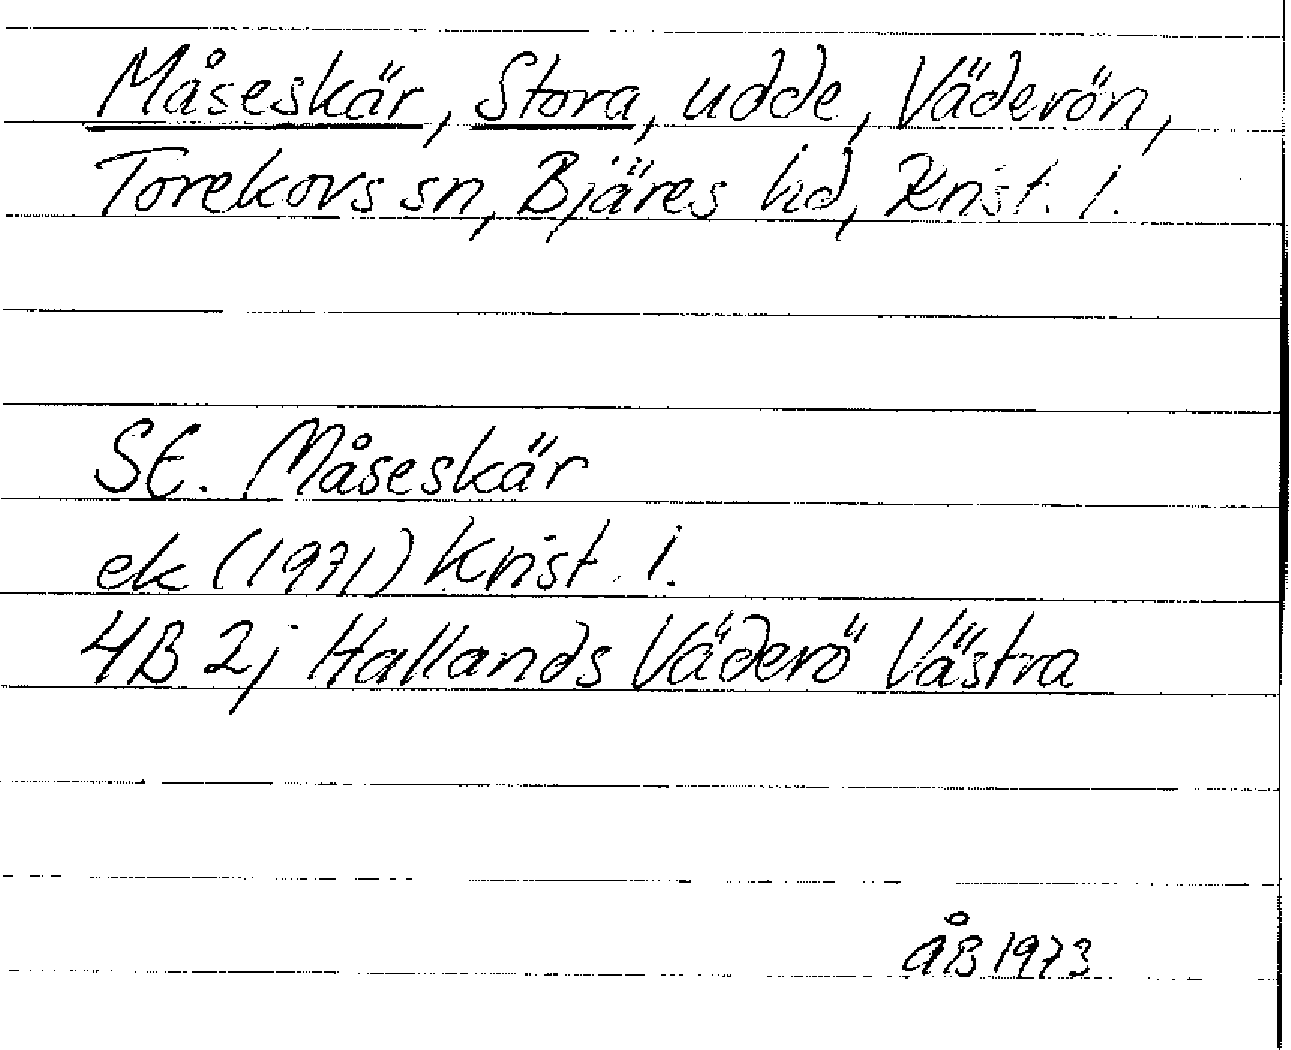 Måseskär, Stora, udde, Väderön,
Torekovs sn, Bjäre​s hd, Krist. l.
St. Måseskär
ek (1971) Krist. l.
4B 2j Hallands Väderö Västra
ÅB 1973